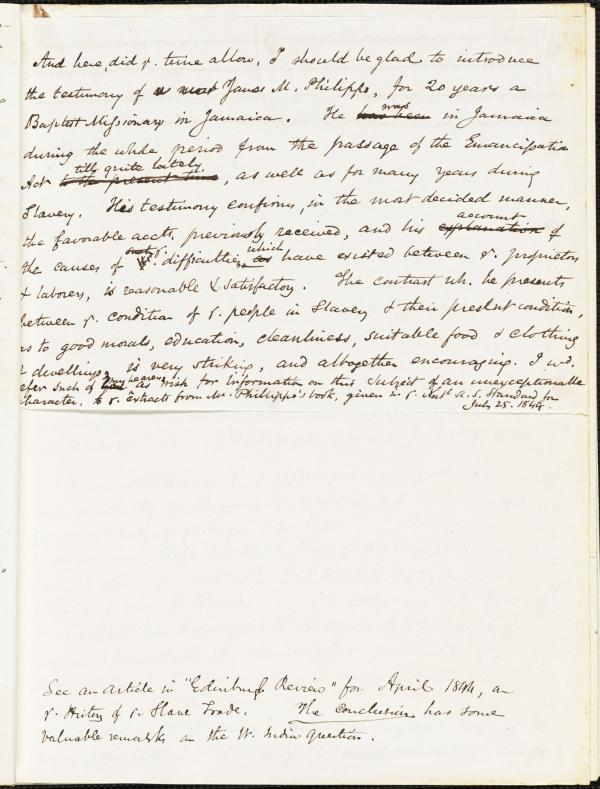 And here, did ye. time allow, I should be glad to introduce
the testimony of James M. Philippo, for 20 years a
Baptist Missionary in Jamaica. He was has been in Jamaica
during the whole period from the passage of the Emancipation
Act till quite lately to the present time, as well as for many years during
Slavery. His testimony confirms, in the most decided manner,
the favorable accts. previously received, and his account explanation of
the causes of ye. difficulties which as have existed between ye. proprietors
& laborers, is reasonable & satisfactory. The contrast wh. he presents
between ye. condition of ye. people in Slavery & their present condition,
as to good morals, education, cleanliness, suitable food & clothing
& dwellings, is very striking, and altogether encouraging. I wd.
refer such of my hearers as wish for information on this subject of an unexceptionable
character, to ye. extracts from Mr. Philippo's book, given in ye. Natl. A. S. Standard for
July 25. 1844.
See an article in "Edinburgh Review" for April 1844, on
ye. History of ye. Slave Trade. The conclusion has some
valuable remarks on the W. India question.